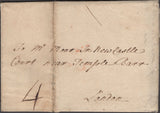 To Mr Flour In Newcastle
Court near Temple Barr
London
4